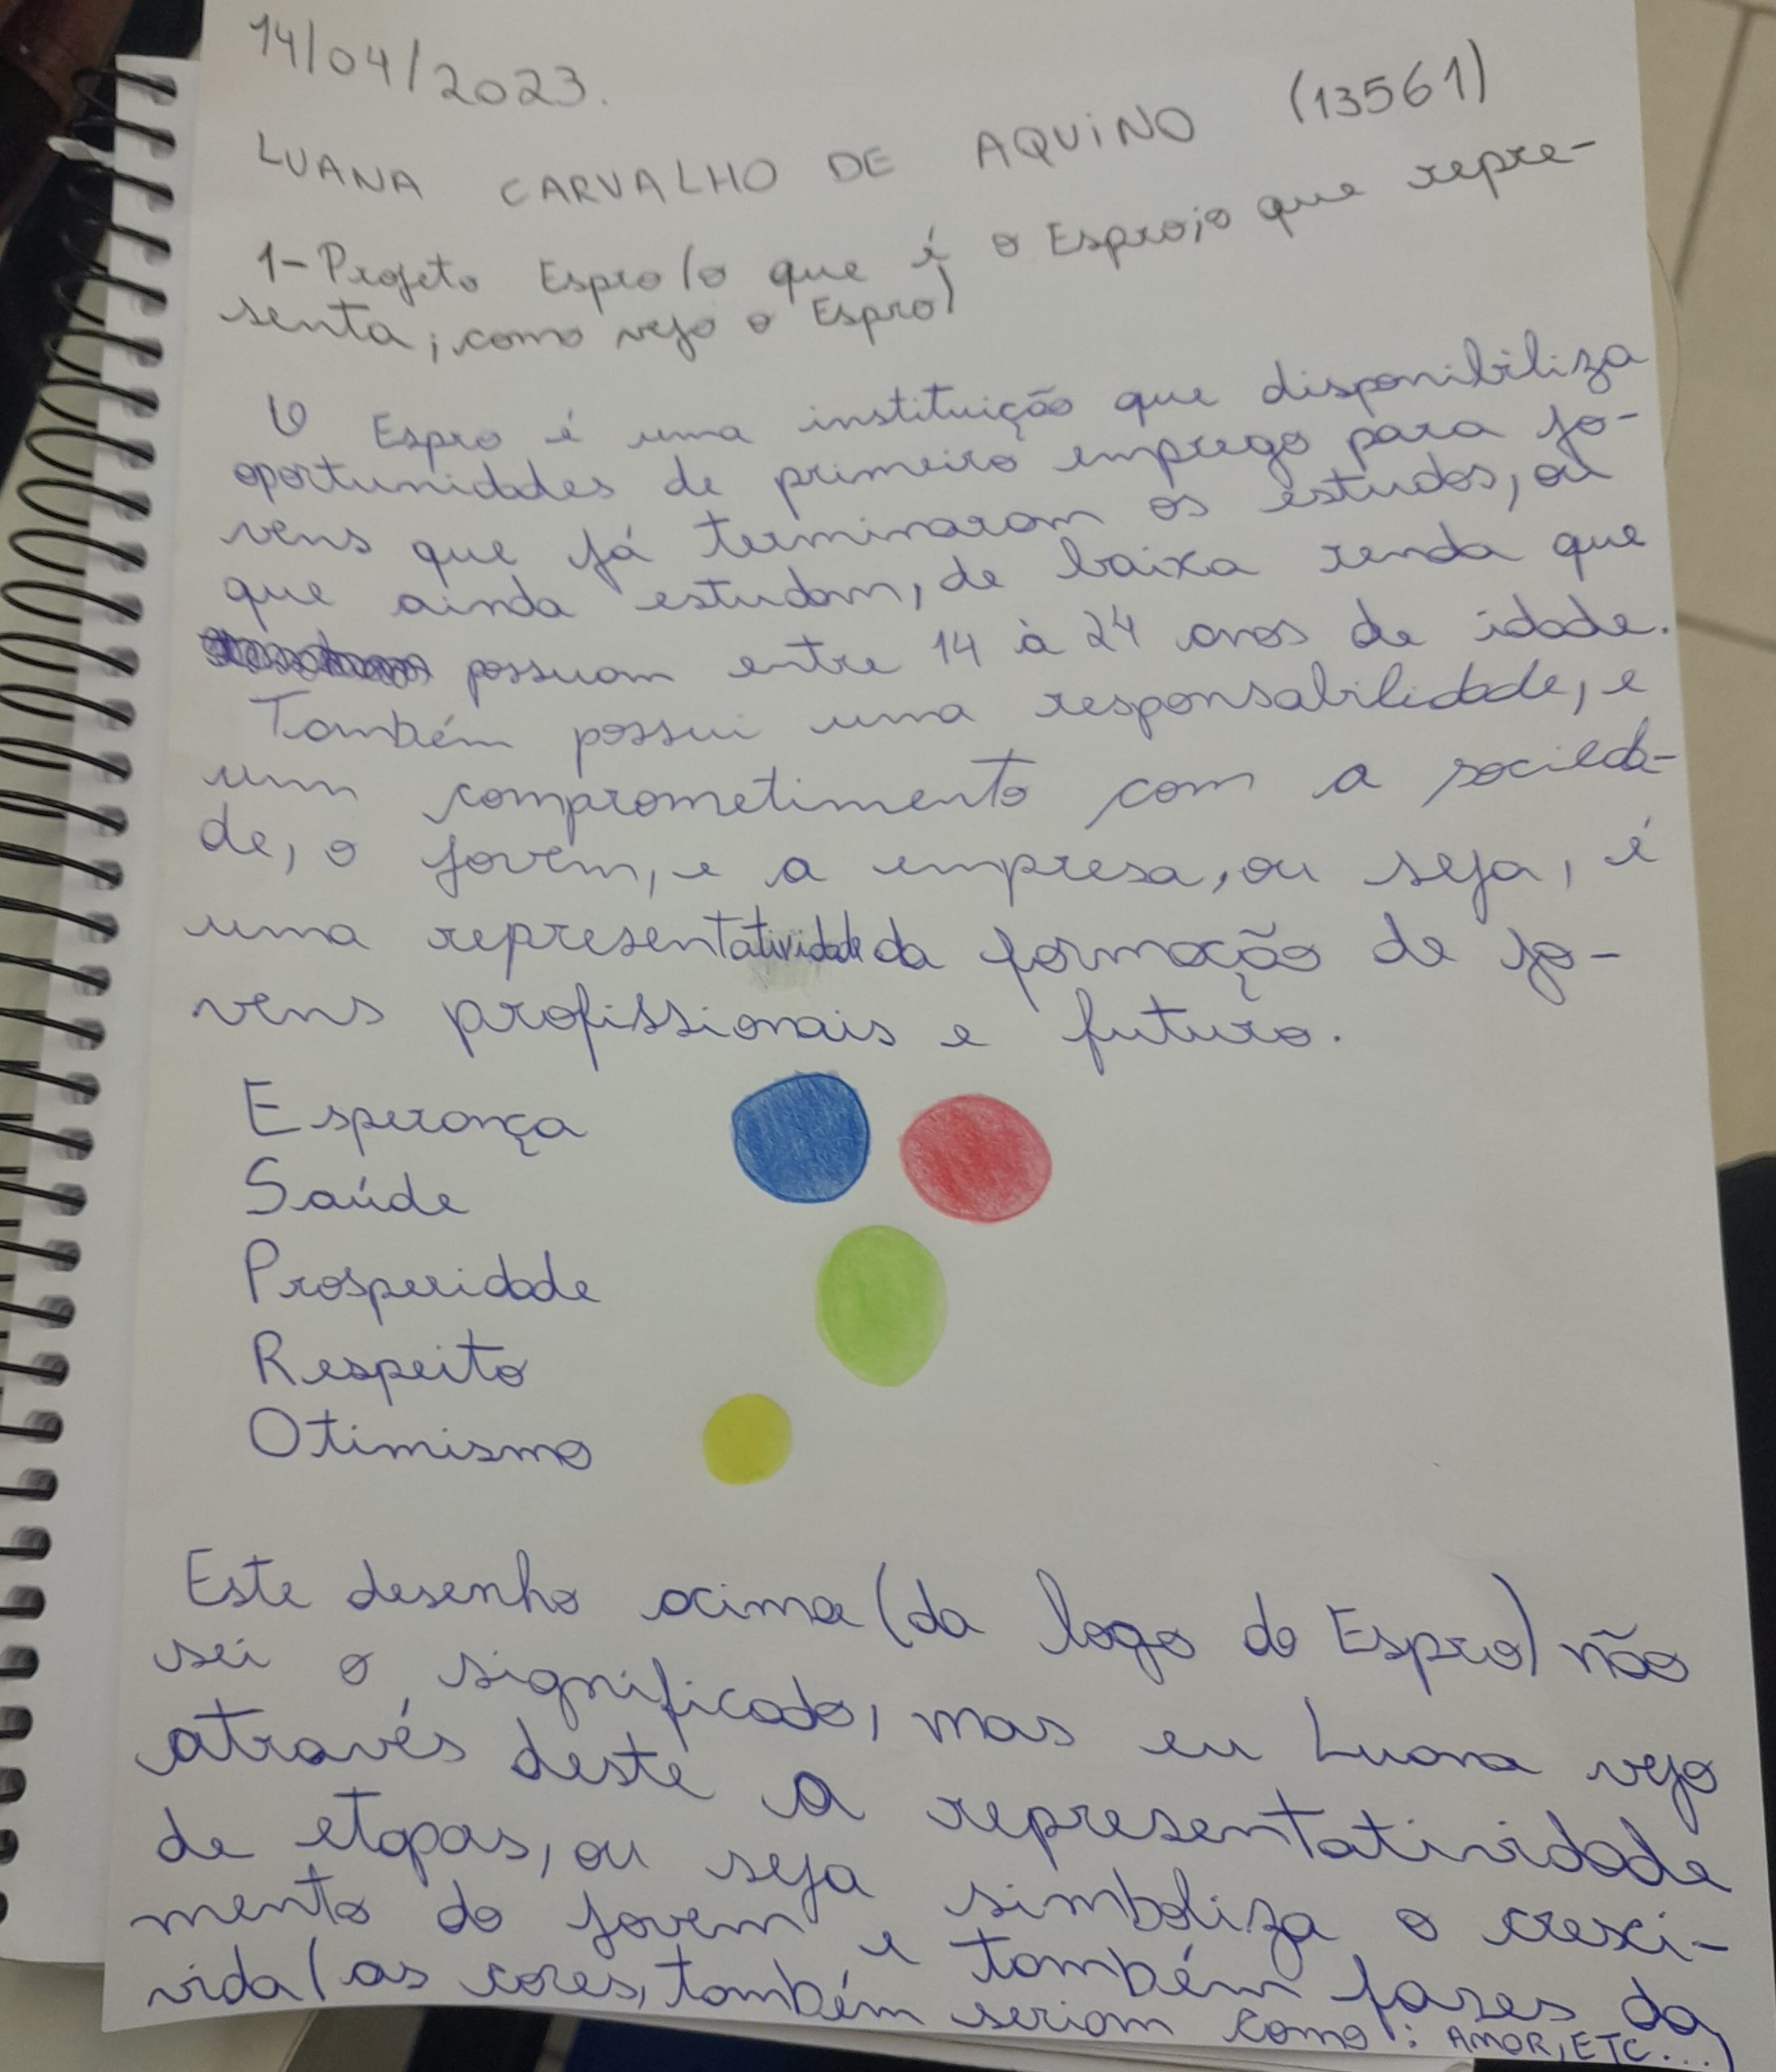 14/04/2023.
LUANA CARVALHO DE AQUINO (13561)
1-Projeto Espro (o que é o Espro; o que repre-
senta; como vejo o Espro)
O Espro é uma instituição que disponibiliza
oportunidades de primeiro emprego para jo-
vens que já terminaram os estudos, ou
que ainda estudam, de baixa renda que
possuam entre 14 à 24 anos de idade.
Também possui uma responsabilidade, e
um comprometimento com a socieda-
de, o jovem, e a empresa, ou seja, é
uma representatividade da formação de jo-
vens profissionais e futuro.
Esperança
Saúde
Prosperidade
Respeito
Otimismo
Este desenho acima (da logo do Espro) não
sei o significado, mas eu Luana vejo
através deste a representatividade
de etapas, ou seja simboliza o cresci-
mento do jovem e também fases da
vida (as cores, também seriam como: AMOR, ETC...)